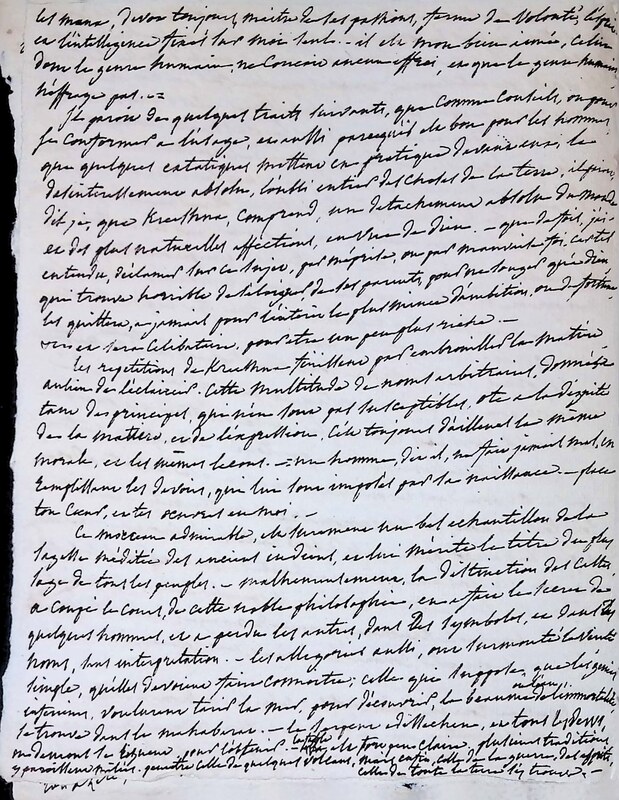 les maux, devoir toujours, maitre de ses passions, ferme de Volonté,
et l'intelligence fixés sur moi seul. - il est mon bien aimé, Celui
dont le genre humain, ne Conçoit aucun effroi, et que le genre humain
n'effraye pas. -
Je parou de quelques traits suivants, que Comme Conseils, on pour
se Conformer à l'usage, et aussi parcequ'il est bon pour les hommes
que quelques extatiques mettent en pratique devant eux, le
desinteressement absolu, l'oubli entier des choses de la terre,
dit je, que Kreeshna, Comprend, un detachement absolu du monde
et des plus naturelles affections, en vue de dieu. - que de fois, j'ai
entendu, déclamer sur ce sujet, par mépris, ou par mauvaise foi,
qui trouve horrible de s'eloigner, de ses parents, pour ne songer qu'a dieu
les quittera, a jamais pour l'interet le plus mince d'ambition, ou de fortune
et sera Celibataire, pour etre un peu plus riche. -
Les repetitions de Kreeshna finissent par embrouiller la matiere
au lieu de l'eclaircir. Cette multitude de noms arbitraires, donnés
a des principes, qui n'en sont pas susceptibles, ote a la dignité
de la matiere, et de l'expression. C'est toujours d'ailleurs la même
morale, et les mêmes leçons. - un homme, dit il, ne fait jamais mal, en
remplissant les devoirs, qui lui sont imposés par la naissance. - place
ton Coeur, et tes oeuvres en moi. -
Ce morceau admirable, est surement un bel echantillon de la
sagesse méditée des anciens indiens, et lui mérite le titre du plus
sage de tous les peuples. - malheureusement, la distinction des Castes
a Coupé le Cours, de cette noble philosophie, en a fait le secret de
quelques hommes, et a perdu les autres, dans les symboles, et dans les
noms, sans interpretation. - Les allegories aussi, ont surmonté la Verité
simple, qu'elles devoient faire Connoitre; celle qui suppose, que les genies
inferieurs, voulurent tirer la mer, pour découvrir, le beaume de l'immortalité
se trouve dans le mahabarat. - Le serpent
pour l'obtenir est fort peu claire, plusieurs traditions,
y paroissent mêlées. peut etre celle de quelques Volcans, mais enfin, celle de la guerre, des esprits,
celle de toute la terre s'y trouve. -